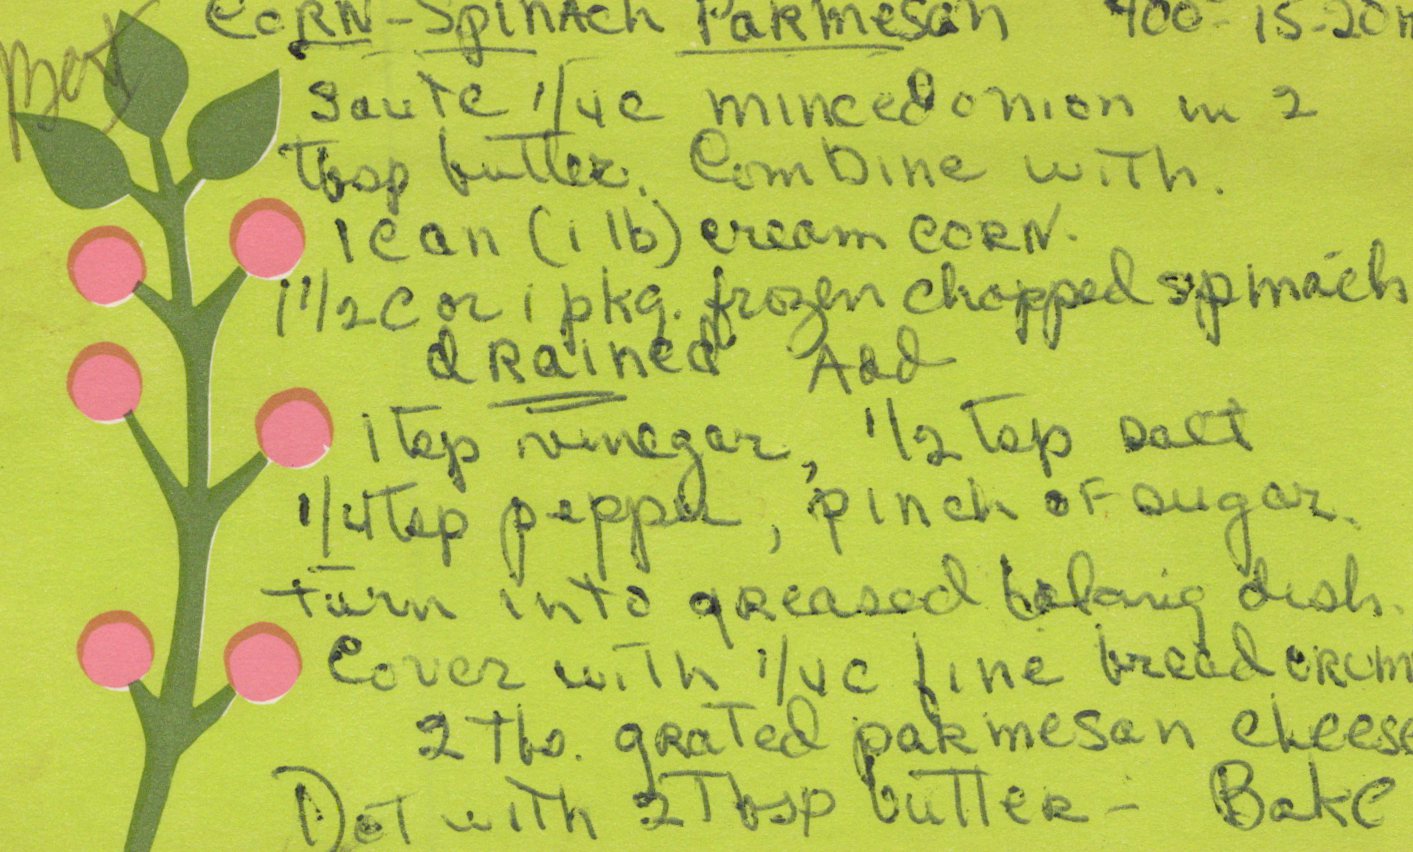 Best
Corn-Spinach Parmesan 400° 15-20m
Saute 1/4c minced onion in 2
Tbsp butter. Combine with.
1 can (1 lb) cream corn.
1 1/2 C or 1 pkg. frozen chopped spinach
drained Add
1 tsp vinegar, 1/2 tsp salt
1/4 tsp pepper, pinch of sugar.
turn into greased baking dish.
Cover with 1/4c fine bread crum
2 Tbs. grated parmesan cheese
Dot with 2 Tbsp butter - Bake